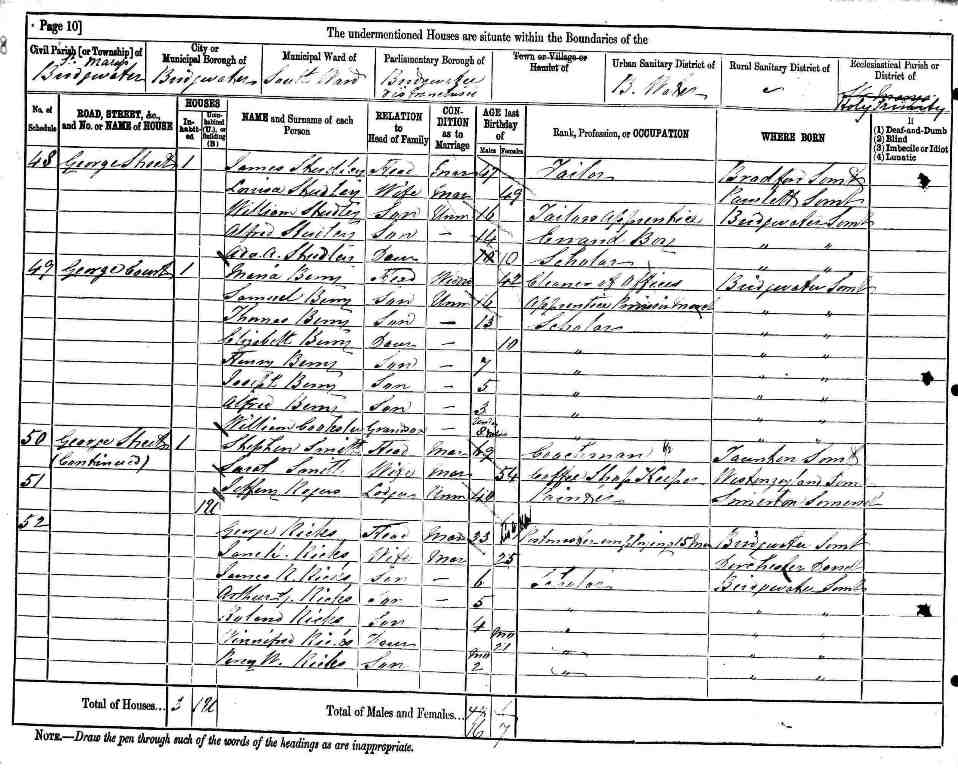 Page 10]
The undermentioned Houses are situate within the Boundaries of the
Civil Parish [or Township] of
City or Municipal Borough of
Municipal Ward of
Parliamentary Borough of
Town or Village or Hamlet of
Urban Sanitary District of
Rural Sanitary District of
Ecclesiastical Parish or District of
St Marys Bridgwater
Bridgwater
South Ward
Bridgwater
B. Water
Holy Trinity
No. of Schedule
ROAD, STREET, &c., and No. or NAME of HOUSE
HOUSES
Inhabited
Uninhabited (U.), or Building (B)
NAME and Surname of each Person
RELATION to Head of Family
CONDITION as to Marriage
AGE last Birthday of
Males
Females
Rank, Profession, or OCCUPATION
WHERE BORN
If
(1) Deaf-and-Dumb
(2) Blind
(3) Imbecile or Idiot
(4) Lunatic
48 George Street 1 James Studley Head Mar 47 Tailor Bradford Somt
Louisa Studley Wife Mar 49 Pawlett Somt
William Studley Son Unm 16 Tailors Apprentice Bridgwater Somt
Alfred Studley Son – 14 Errand Boy " "
Ada A. Studley Daur 10 Scholar " "
49 George Court 1 Maria Berry Head Widow 42 Cleaner of Offices Bridgwater Somt
Samuel Berry Son Unm 16 Apprentice " "
Thomas Berry Son – 13 Scholar " "
Elizabeth Berry Daur – 10 " " "
Henry Berry Son – 7 " " "
Joseph Berry Son – 5 " " "
Alfred Berry Son – 3 " " "
William Grandson – Under 8 " " "
50 George Street 1 Stephen Smith Head Mar 49 Coachman Taunton Somt
(Continued) Sarah Smith Wife Mar 54 Coffee Shop Keeper Westonzoyland Som
51 Jeffery Rogers Lodger Unm 40 Printer Somerton Somerset
1 U
52 George Ricks Head Mar 33 employing 15 Men Bridgwater Somt
Ricks Wife Mar 25 Dorchester Dorset
James R. Ricks Son – 6 Scholar Bridgwater Somt
Arthur J. Ricks Son – 5 " " "
Roland Ricks Son 4 " " "
Winnifred Ricks Daur Mo 21 " " "
Percy W. Ricks Son Mo 2 " " "
Total of Houses... 3 1 U
Total of Males and Females... 16 7
NOTE.—Draw the pen through such of the words of the headings as are inappropriate.